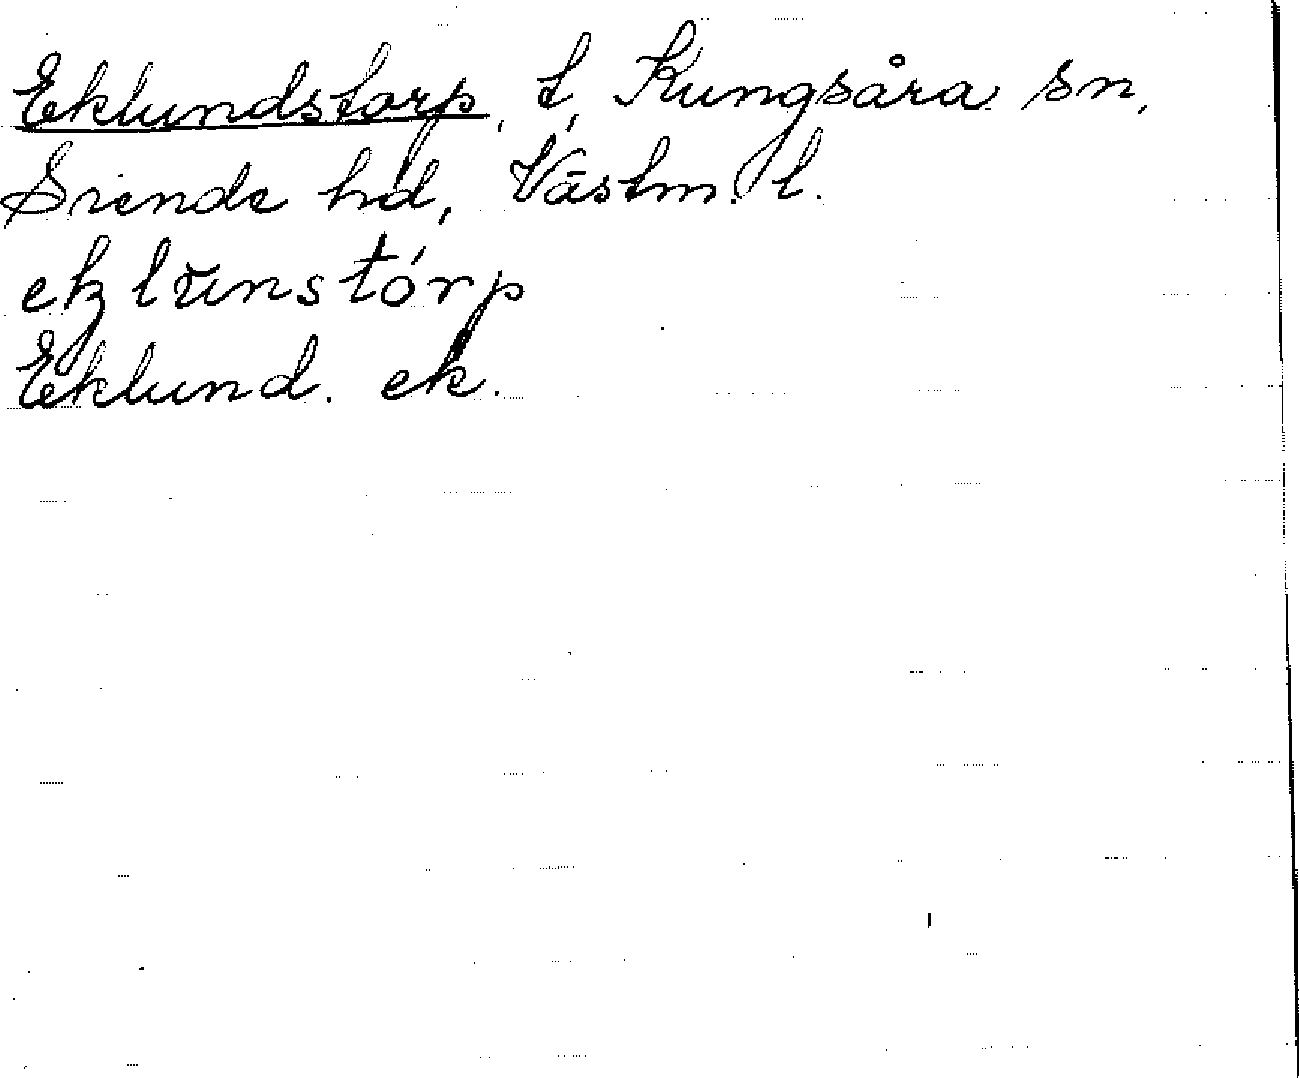 Eklundstorp, t, Kungsåra sn,
Siende hd, Västm. l.
eklunstórp
Eklund. ek.